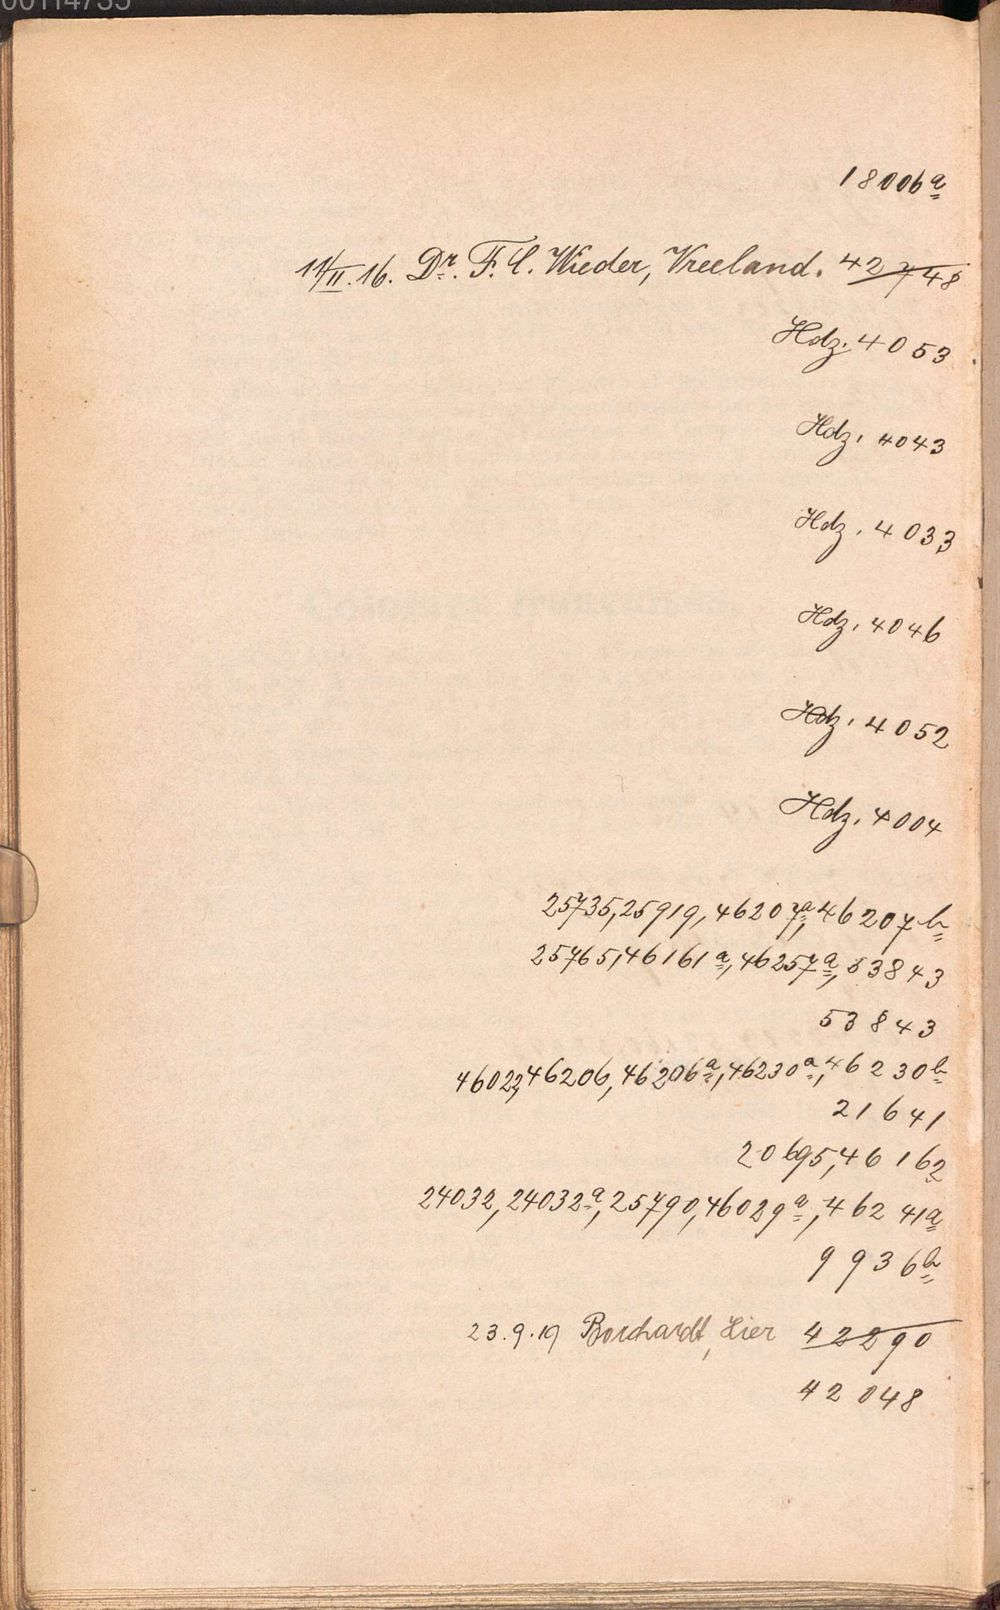 00114735
18006a
11/II.16. Dr. F. C. Wieder, Vreeland. 42748
Hdz. 4053
Hdz. 4043
Hdz. 4033
Hdz. 4046
Hdz. 4052
Hdz. 4004
25735, 25919, 46207a, 46207b
25765, 46161a, 46257a, 53843
53843
46022, 46206, 46206a, 46230a, 46230b
21641
20695, 46162
24032, 24032a, 25790, 46029a, 46241a
9936b
23.9.19 Borchardt, Hier 42290
42048